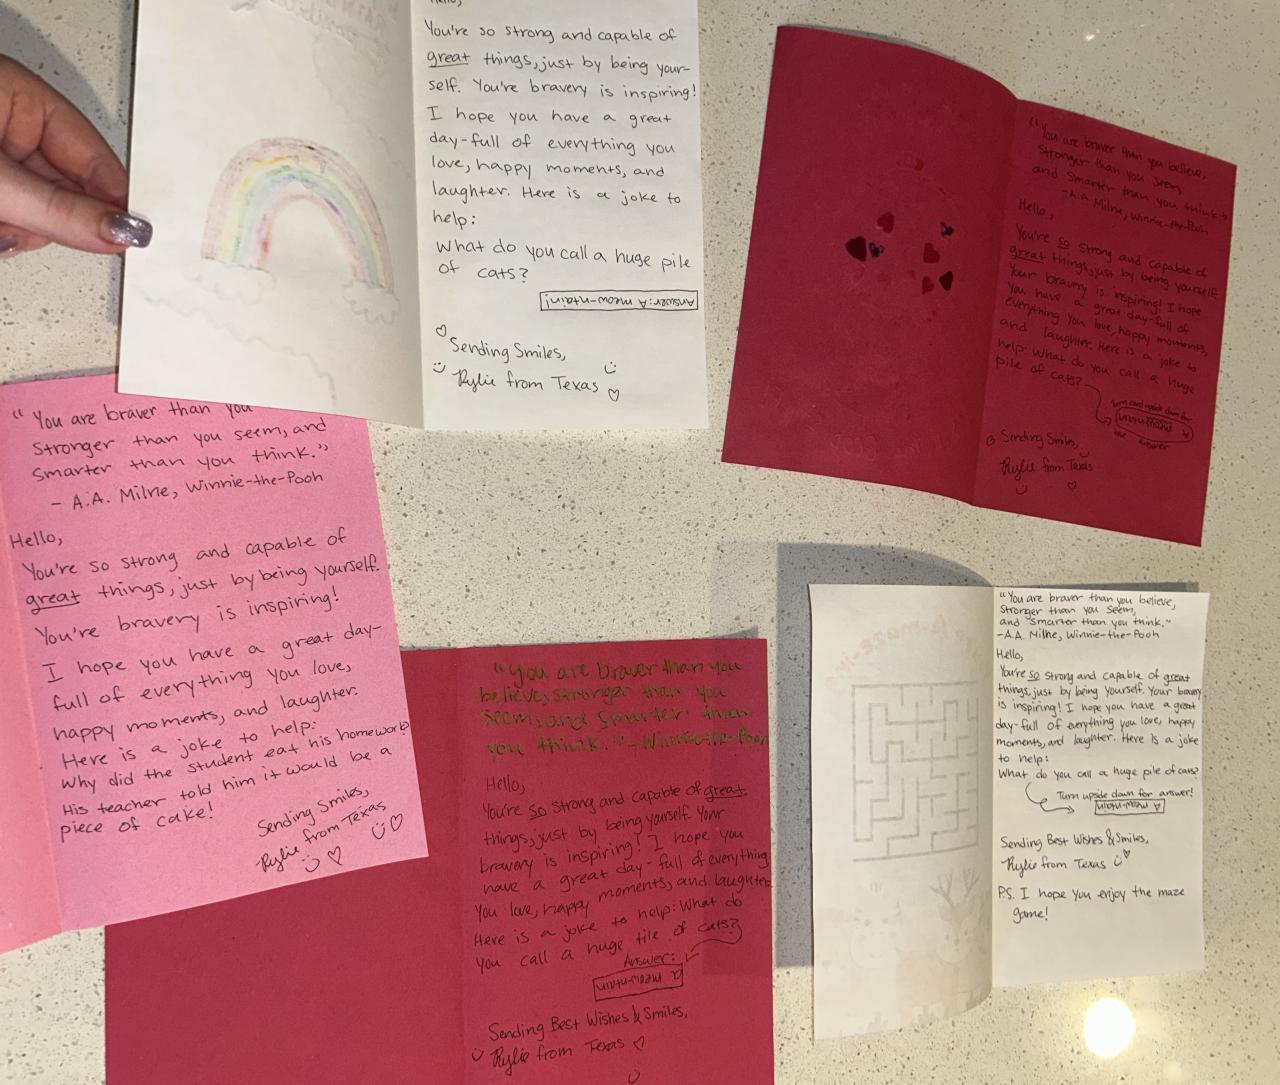 Hello,
You're so strong and capable of
great things, just by being your-
self. You're bravery is inspiring!
I hope you have a great
day-full of everything you
love, happy moments, and
laughter. Here is a joke to
help:
What do you call a huge pile
of cats?
Answer: A meow-ntain!
Sending Smiles,
Rylie from Texas
"You are braver than you believe,
stronger than you seem
and smarter than you think."
-A.A Milne, Winnie-the-Pooh
Hello,
You're so strong and capable of
great things, just by being yourself.
Your bravery is inspiring! I hope
you have a great day-full of
everything you love, happy moments,
and laughter. Here is a joke to
help: What do you call a huge
pile of cats?
turn card upside down for
A meow-ntain
the answer
Sending Smiles,
Rylie from Texas
"You are braver than you
stronger than you seem, and
smarter than you think."
- A.A. Milne, Winnie-the-Pooh
Hello,
You're so strong and capable of
great things, just by being yourself.
You're bravery is inspiring!
I hope you have a great day-
full of everything you love,
happy moments, and laughter.
Here is a joke to help:
Why did the student eat his homework
His teacher told him it would be a
piece of cake!
Sending Smiles,
Rylie from Texas
"You are braver than you
believe, stronger than you
seem, and smarter than
you think." - Winnie-the-Pooh
Hello,
You're so strong and capable of great
things, just by being yourself. Your
bravery is inspiring! I hope you
have a great day- full of everything
you love, happy moments, and laughter.
Here is a joke to help: What do
you call a huge tile of cats?
Answer:
A meow-ntain
Sending Best Wishes & Smiles,
Rylie from Texas
"You are braver than you believe,
stronger than you seem,
and smarter than you think."
-A.A. Milne, Winnie-the-Pooh
Hello,
You're so strong and capable of great
things, just by being yourself. Your bravery
is inspiring! I hope you have a great
day-full of everything you love, happy
moments, and laughter. Here is a joke
to help:
What do you call a huge pile of cats?
Turn upside down for answer!
A meow-ntain
Sending Best Wishes & Smiles,
Rylie from Texas
P.S. I hope you enjoy the maze
game!